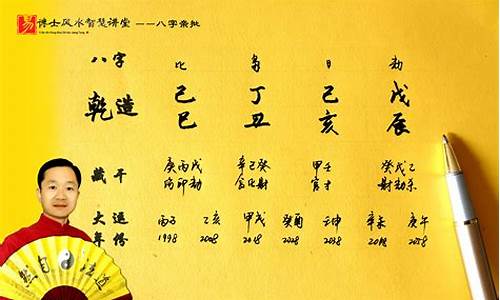 易 博士风水智慧讲堂 ——八字亲批
八字 比 枭 日 劫
乾造 己 丁 己 戊
巳 丑 亥 辰
藏干 庚丙戊 辛己癸 甲壬 癸戊乙
伤印劫 食比财 官才 财劫杀
大运 丙子 乙亥 甲戌 癸酉 壬申 辛未 庚午
年份 1998 2008 2018 2028 2038 2048 2058
然自法道